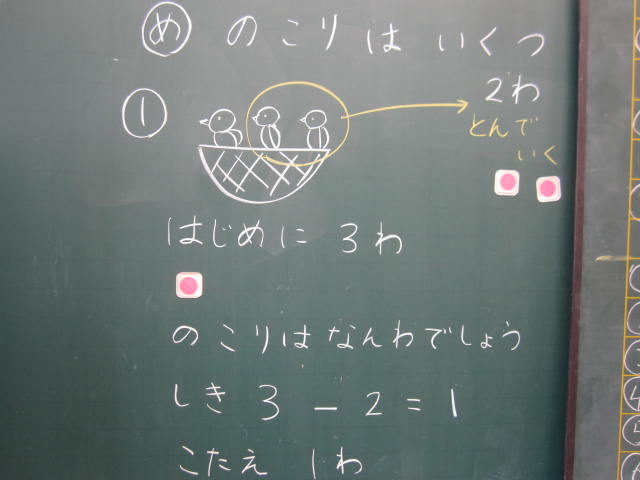 め のこりは いくつ
① 2わ
とんで
いく
はじめに 3わ
のこりはなんわでしょう
しき 3－2＝1
こたえ 1わ